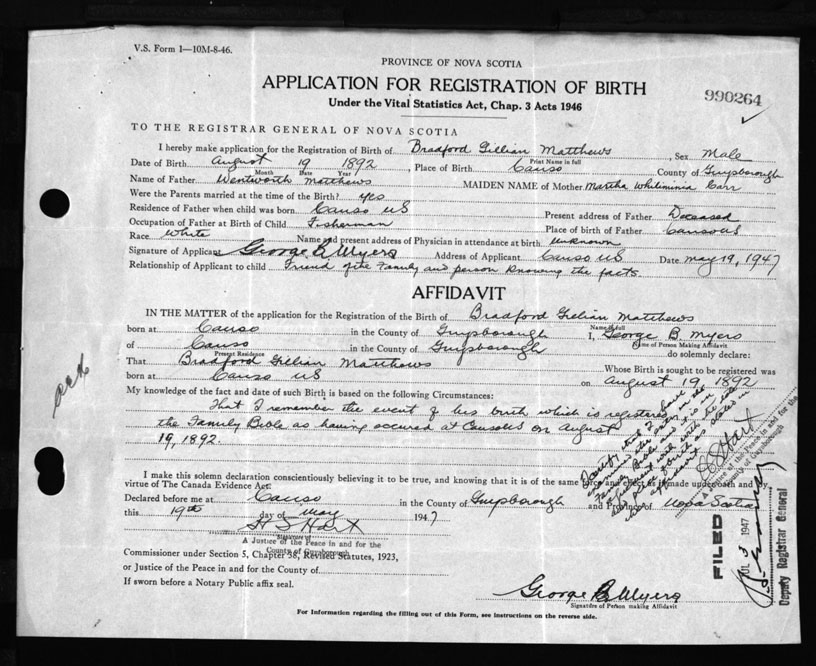 V.S. Form 1—10M-8-46.
PROVINCE OF NOVA SCOTIA
APPLICATION FOR REGISTRATION OF BIRTH
990264
Under the Vital Statistics Act, Chap. 3 Acts 1946
TO THE REGISTRAR GENERAL OF NOVA SCOTIA
I hereby make application for the Registration of Birth of Bradford Gillian Matthews , Sex Male
Print Name in full
Date of Birth August 19 1892 , Place of Birth Canso County of Guysborough
Month Date Year
Name of Father Wentworth Matthews MAIDEN NAME of Mother Martha Whiliminia Carr
Were the Parents married at the time of the Birth? yes
Residence of Father when child was born Canso NS Present address of Father Deceased
Occupation of Father at Birth of Child Fisherman Place of birth of Father Canso NS
Race White Name and present address of Physician in attendance at birth unknown
Signature of Applicant George B Myers Address of Applicant Canso NS Date May 19, 1947
Relationship of Applicant to child Friend of the Family and person knowing the facts
AFFIDAVIT
IN THE MATTER of the application for the Registration of the Birth of Bradford Gillian Matthews
Name in full
born at Canso in the County of Guysborough I, George B. Myers
Name of Person Making Affidavit
of Canso in the County of Guysborough do solemnly declare:
Present Residence
That Bradford Gillian Matthews Whose Birth is sought to be registered was
born at Canso NS on August 19, 1892
My knowledge of the fact and date of such Birth is based on the following Circumstances:
That I remember the event of his birth which is registered
the Family Bible as having occured at Canso NS on August
19, 1892.
I make this solemn declaration conscientiously believing it to be true, and knowing that it is of the same force and effect as if made under oath and by
virtue of The Canada Evidence Act.
Declared before me at Canso in the County of Guysborough and Province of Nova Scotia
this 19th day of May 1947
H S Hart
Signature of
A Justice of the Peace in and for the
County of Guysborough
Commissioner under Section 5, Chapter 38, Revised Statutes, 1923,
or Justice of the Peace in and for the County of
If sworn before a Notary Public affix seal.
George B Myers
Signature of Person making Affidavit
For Information regarding the filling out of this Form, see instructions on the reverse side.
I certify that I have
Family Bible and it is in
agreement with the date
and place of birth as stated in
H S Hart
A Justice of the Peace in and for the
County of Guysborough
FILED
JUL 3 1947
Deputy Registrar General